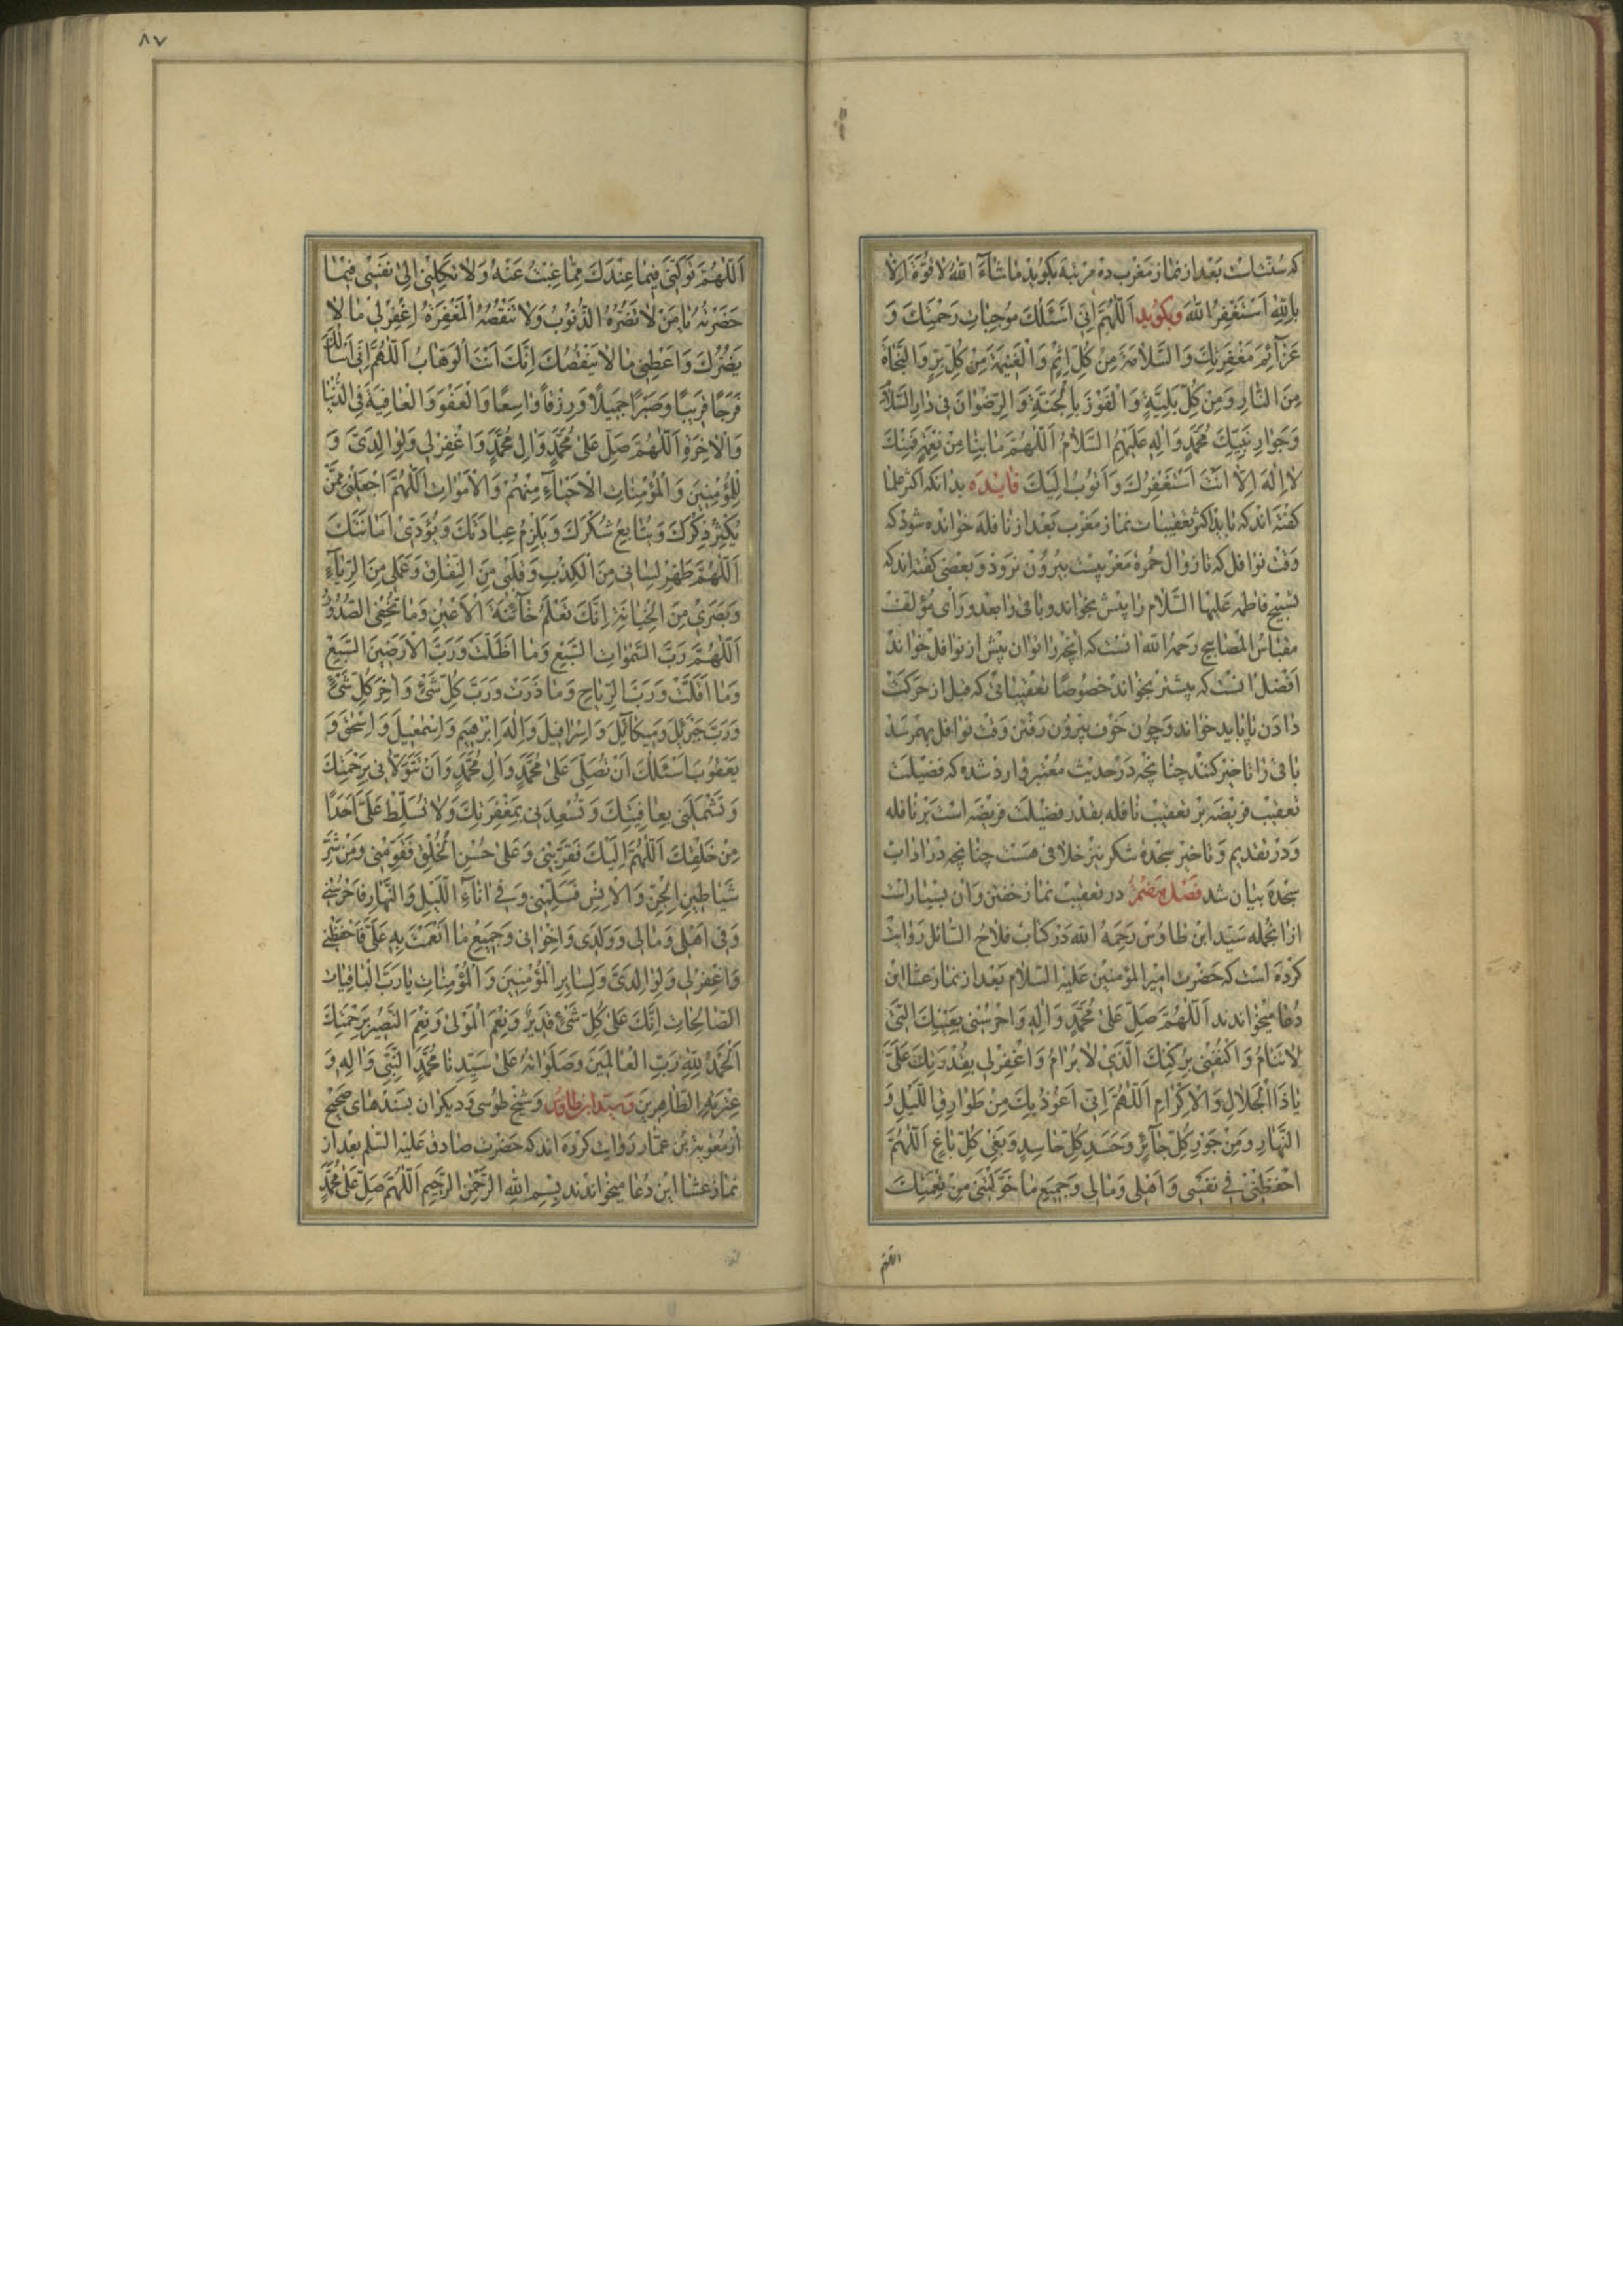 که سنت است بعد از نماز مغرب ده مرتبه بگوید ما شآء الله لا قوة الا
بالله استغفر الله وبگوید اللهم انی اسئلک موجبات رحمتک و
عزآئم مغفرتک والسلامة من کل اثم والغنیمة من کل بر والنجاة
من النار ومن کل بلیة والفوز بالجنة والرضوان فی دار السلام
وجوار نبیک محمد واله علیهم السلام اللهم ما بنا من نعمة فمنک
لا اله الا انت استغفرک واتوب الیک فایده بدانکه اکثر علما
گفته اند که باید اکثر تعقیبات نماز مغرب بعد از نافله خوانده شود که
وقت نوافل که تا زوال حمره مغربیست بیرون نرود و بعضی گفته اند که
تسبیح فاطمه علیها السلام را پیش بخواند و باقی را بعد و رای مؤلف
مقباس المصابیح رحمه الله انست که انچه را توان پیش از نوافل خواند
افضل انست که پیشتر بخواند خصوصا تعقیباتی که قبل از حرکت
دادن پا باید خواند و چون خوف بیرون رفتن وقت نوافل بهم رسد
باقی را تاخیر کنند چنانچه در حدیث معتبر وارد شده که فضیلت
تعقیب فریضه بر تعقیب نافله بقدر فضیلت فریضه است بر نافله
و در تقدیم و تاخیر سجده شکر نیز خلافی هست چنانچه در اداب
سجده بیان شد فصل هفتم در تعقیب نماز خفتن و ان بسیار است
از انجمله سید ابن طاوس رحمه الله در کتاب فلاح السائل روایت
کرده است که حضرت امیر المؤمنین علیه السلام بعد از نماز عشا این
دعا میخواندند اللهم صل علی محمد واله واحرسنی بعینک التی
لا تنام واکنفنی برکنک الذی لا یرام واغفر لی بقدرتک علی
یا ذا الجلال والاکرام اللهم انی اعوذ بک من طوارق اللیل و
النهار ومن جور کل جآئر وحسد کل حاسد وبغی کل باغ اللهم
احفظنی فی نفسی واهلی ومالی وجمیع ما خولتنی من نعمتک
اللهم
٨٧
اللهم تولنی فیما عندک مما غبت عنه ولا تکلنی الی نفسی فیما
حضرته یا من لا تضره الذنوب ولا تنقصه المغفرة اغفر لی ما لا
یضرک واعطنی ما لا ینقصک انک انت الوهاب اللهم انی اسالک
فرجا قریبا وصبرا جمیلا ورزقا واسعا والعفو والعافیة فی الدنیا
والاخرة اللهم صل علی محمد وال محمد واغفر لی ولوالدی و
للمؤمنین والمؤمنات الاحیآء منهم والاموات اللهم اجعلنی ممن
یکثر ذکرک ویتابع شکرک ویلزم عبادتک ویؤدی امانتک
اللهم طهر لسانی من الکذب وقلبی من النفاق وعملی من الریآء
وبصری من الخیانة انک تعلم خآئنة الاعین وما تخفی الصدور
اللهم رب السموات السبع وما اظلت ورب الارضین السبع
وما اقلت ورب الریاح وما ذرت ورب کل شئ واخر کل شئ
ورب جبرئیل ومیکآئیل واسرافیل واله ابرهیم واسمعیل واسحق و
یعقوب اسئلک ان تصلی علی محمد وال محمد وان تتولانی برحمتک
وتشملنی بعافیتک وتسعدنی بمغفرتک ولا تسلط علی احدا
من خلقک اللهم الیک فقربنی وعلی حسن الخلق فقومنی ومن شر
شیاطین الجن والانس فسلمنی وفی انآء اللیل والنهار فاحرسنی
وفی اهلی ومالی وولدی واخوانی وجمیع ما انعمت به علی فاحفظنی
واغفر لی ولوالدی ولسایر المؤمنین والمؤمنات یا رب الباقیات
الصالحات انک علی کل شئ قدیر ونعم المولی ونعم النصیر برحمتک
الحمد لله رب العالمین وصلواته علی سیدنا محمد النبی واله و
عترته الطاهرین وسید ابن طاوس و شیخ طوسی و دیگران بسندهای صحیح
از معویة بن عمار روایت کرده اند که حضرت صادق علیه السلم بعد از
نماز عشا این دعا میخواندند بسم الله الرحمن الرحیم اللهم صل علی محمد